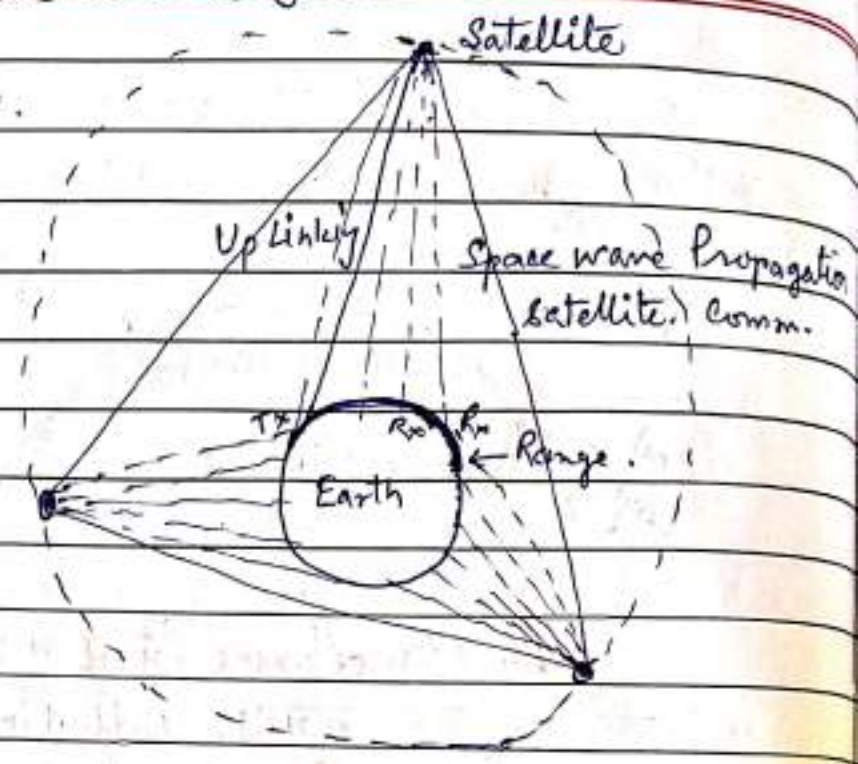 Satellite
Up Linkig
Space wave Propagatio
Satellite. Comm.
Tx
Rx
Rx
← Range.
Earth